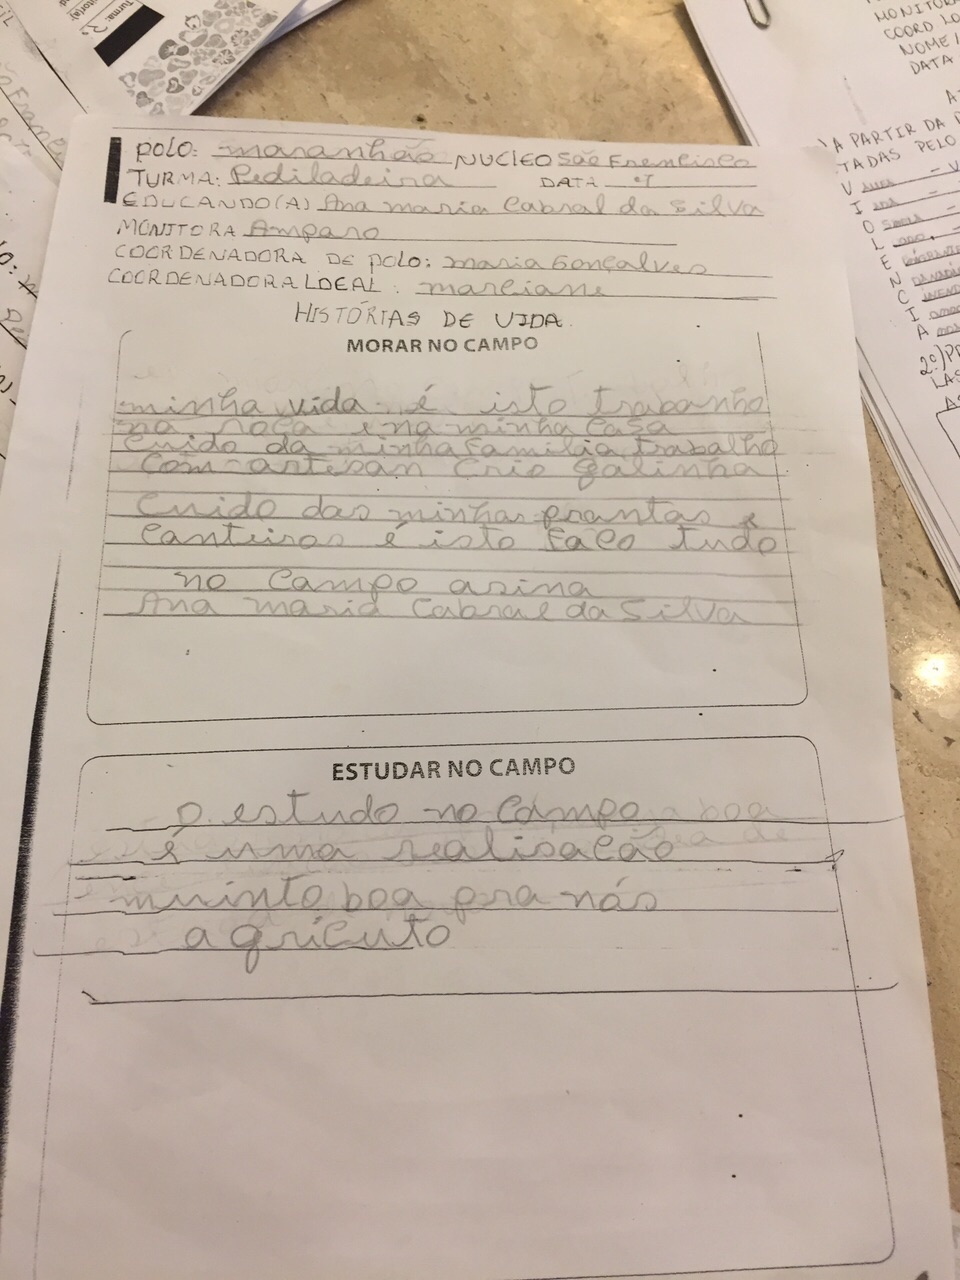 POLO: maranhão NUCLEO São Francisco
TURMA: Pediladeira DATA
EDUCANDO(A) Ana maria Cabral da Silva
MONITORA Amparo
COORDENADORA DE POLO: maria Gonçalves
COORDENADORA LOCAL: marciane
HISTÓRIAS DE VIDA.
MORAR NO CAMPO
minha vida é isto trabanho
na roca e na minha casa
Cuido da minha familia trabalho
com artesan crio galinha
Cuido das minhas prantas e
canteiros é isto faco tudo
no campo asina
Ana maria Cabral da Silva
ESTUDAR NO CAMPO
O estudo no campo
é uma realisacão
muinto boa pra nós
agricuto
MONITORA
COORD LO
NOME/
DATA
A PARTIR DA
TADAS PELO
V
I
O
L
E
N
C
I
A
2º) PR
LAS
Turma: